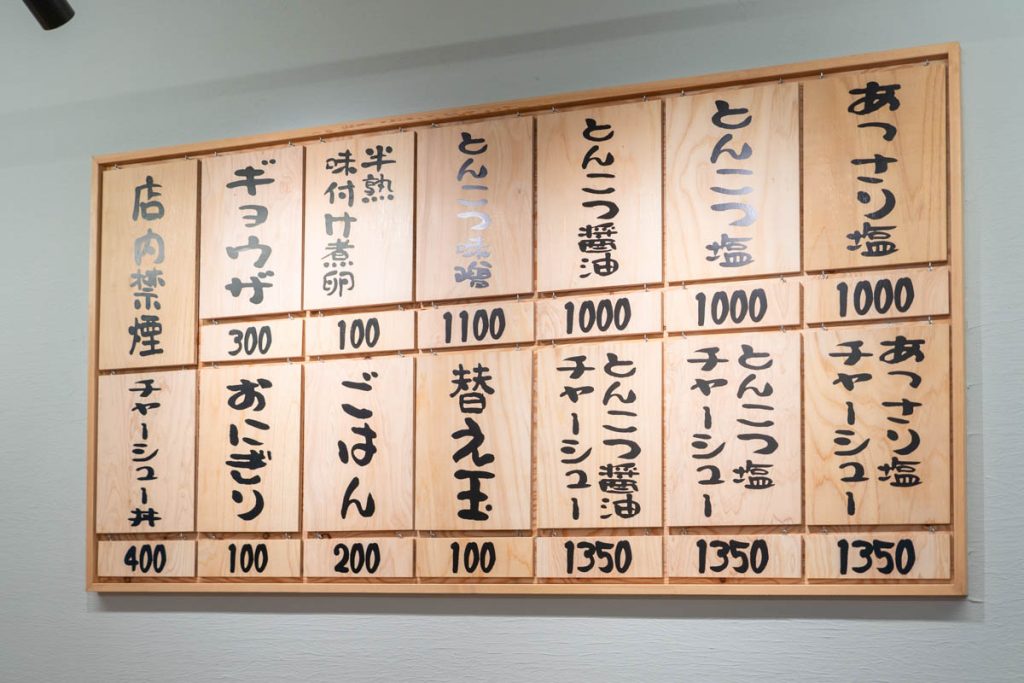 あっさり塩
1000
とんこつ塩
1000
とんこつ醤油
1000
とんこつ味噌
1100
半熟
味付け煮卵
100
ギョウザ
300
店内禁煙
あっさり塩
チャーシュー
1350
とんこつ塩
チャーシュー
1350
とんこつ醤油
チャーシュー
1350
替え玉
100
ごはん
200
おにぎり
100
チャーシュー丼
400